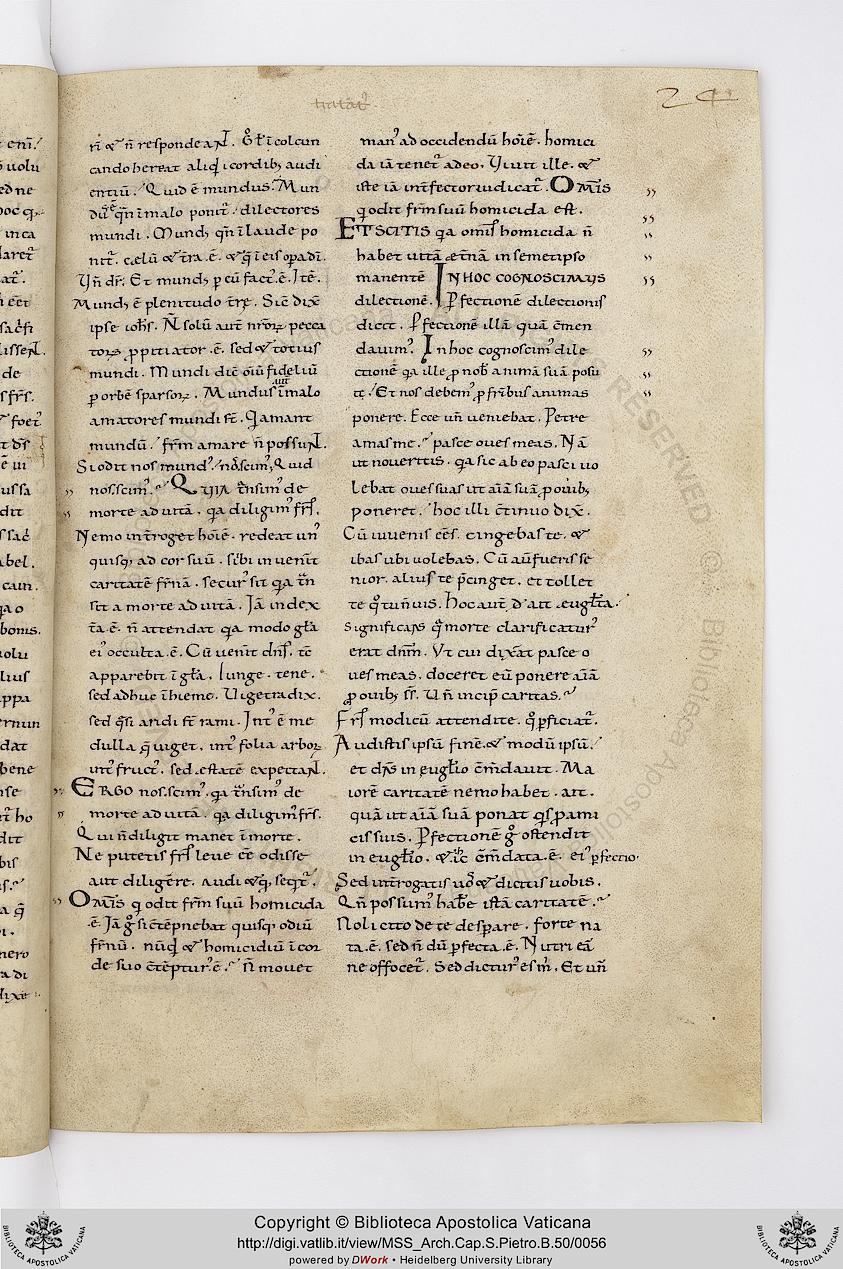 tractat᷒
24
n̄ & n̄ respondeant. G̊ h̄ i colcun
cando hereat aliqd i cordib; audi
entiū. Quid ē mundus. Mun
dus qn̄ i malo ponit᷑. dilectores
mundi. Mund; qn̄ i laude po
nit᷑. celū & tr̄a. ē. & q̄ i eis opa dī.
Vn̄ dr̄. Et mund; p eū fact᷒. ē. Itē.
Mund; ē plenitudo tr̄e. Sic̄ dix̄
ipse ioh̄s. N̄ solū aut̄ nr̄oꝝ pecca
toꝝ ꝓpitiator. ē. sed & totius
mundi. Mundi dic̄ oīu fideliū
p orbē sparsoꝝ. Mundus aut̄ i malo
amatores mundi st̄. Qi amant
mundū. fr̄m amare n̄ possunt.
Si odit nos mund᷒. nos scim᷒. Quid
nos scim᷒. QUIA t̄nsim᷒ de
morte ad uitā. qa diligim᷒ fr̄s.
Nemo int̄roget hoīē. redeat un᷒
quisq; ad cor suū. si ibi inuenit
caritatē fr̄nā. secur᷒ sit qa t̄n
sit a morte ad uitā. Iā in dex
t̄a. ē. n̄ attendat qa modo gl̄a
ei᷒ occulta. ē. Cū uenit dn̄s. tē
apparebit i gl̄a. Iunge. tene.
sed adhuc i hieme. Viget radix.
sed q̄si aridi st̄ rami. Int᷒ ē me
dulla q̄ uiget. int᷒ folia arboꝝ
int᷒ fruct᷒. sed. estatē expectant.
ERGO nos scim᷒. qa t̄nsim᷒ de
morte ad uitā. qa diligim᷒ fr̄s.
Qui n̄ diligit manet i morte.
Ne putetis fr̄s leue eē odisse
aut diligere. audi & q; seqt᷑.
OMīS q odit fr̄m suū homicida
.ē. Iā g̊ si c̄tēpnebat quisq; odiū
fr̄nū. nūqd & homicidiū i cor
de suo c̄tēptur᷒. ē. n̄ mouet
man᷒ ad occidendū hoīē. homici
da iā tenet᷑ a deo. Viuit ille. &
iste iā int̄fector iudicat᷑. OMīS
q odit fr̄m suū homicida est.
ET SCITIS qa omīs homicida n̄
habet uitā et̄nā in semetipso
manentē IN HOC COGNOSCIMUS
dilectionē. Pfectionē dilectionis
dicit. Pfectionē illā quā c̄men
dauim᷒. In hoc cognoscim᷒ dile
ctionē qa ille ꝓ nob᷒ animā suā posu
it. Et nos debem᷒ ꝓ fr̄ibus animas
ponere. Ecce un̄ ueniebat. Petre
amas me. pasce oues meas. Nā
ut noueritis. qa sic ab eo pasci uo
lebat oues suas ut aīā suā ꝓ ouib;
poneret. hoc illi c̄tinuo dix̄.
Cū iuuenis ēēs. cingebas te. &
ibas ubi uolebas. Cū aut̄ fueris se
nior. alius te p̄cinget. et tollet
te q̊ tu n̄ uis. Hoc aut̄. d. ait. eug̅l̅ta.
significans q̄ morte clarificatur᷒
erat dn̄m. Vt cui dixerat pasce o
ues meas. doceret eū ponere aīā
ꝓ ouib; ss̄. Vn̄ incip̄ caritas.
Fr̄s modicū attendite. q̊ pficiat᷑.
Audistis ipsū finē. & modū ipsū.
et dn̄s in eug̅l̅io c̄mdauit. Ma
iorē caritatē nemo habet. ait.
quā ut aīā suā ponat qs ꝓ ami
cis suis. Pfectionē g̊ ostendit
in eug̅l̅io. & hic c̄mdata. ē. ei᷒ pfectio.
Sed int̄rogatis uos & dicitis uobis.
Qn̄ possum᷒ hab̄e istā caritatē.
Noli cito de te despare. forte na
ta. ē. sed n̄ dū pfecta. ē. Nutri eā
ne offocet᷑. Sed dictur᷒ es m̄. Et un̄
Copyright © Biblioteca Apostolica Vaticana
http://digi.vatlib.it/view/MSS_Arch.Cap.S.Pietro.B.50/0056
powered by DWork • Heidelberg University Library